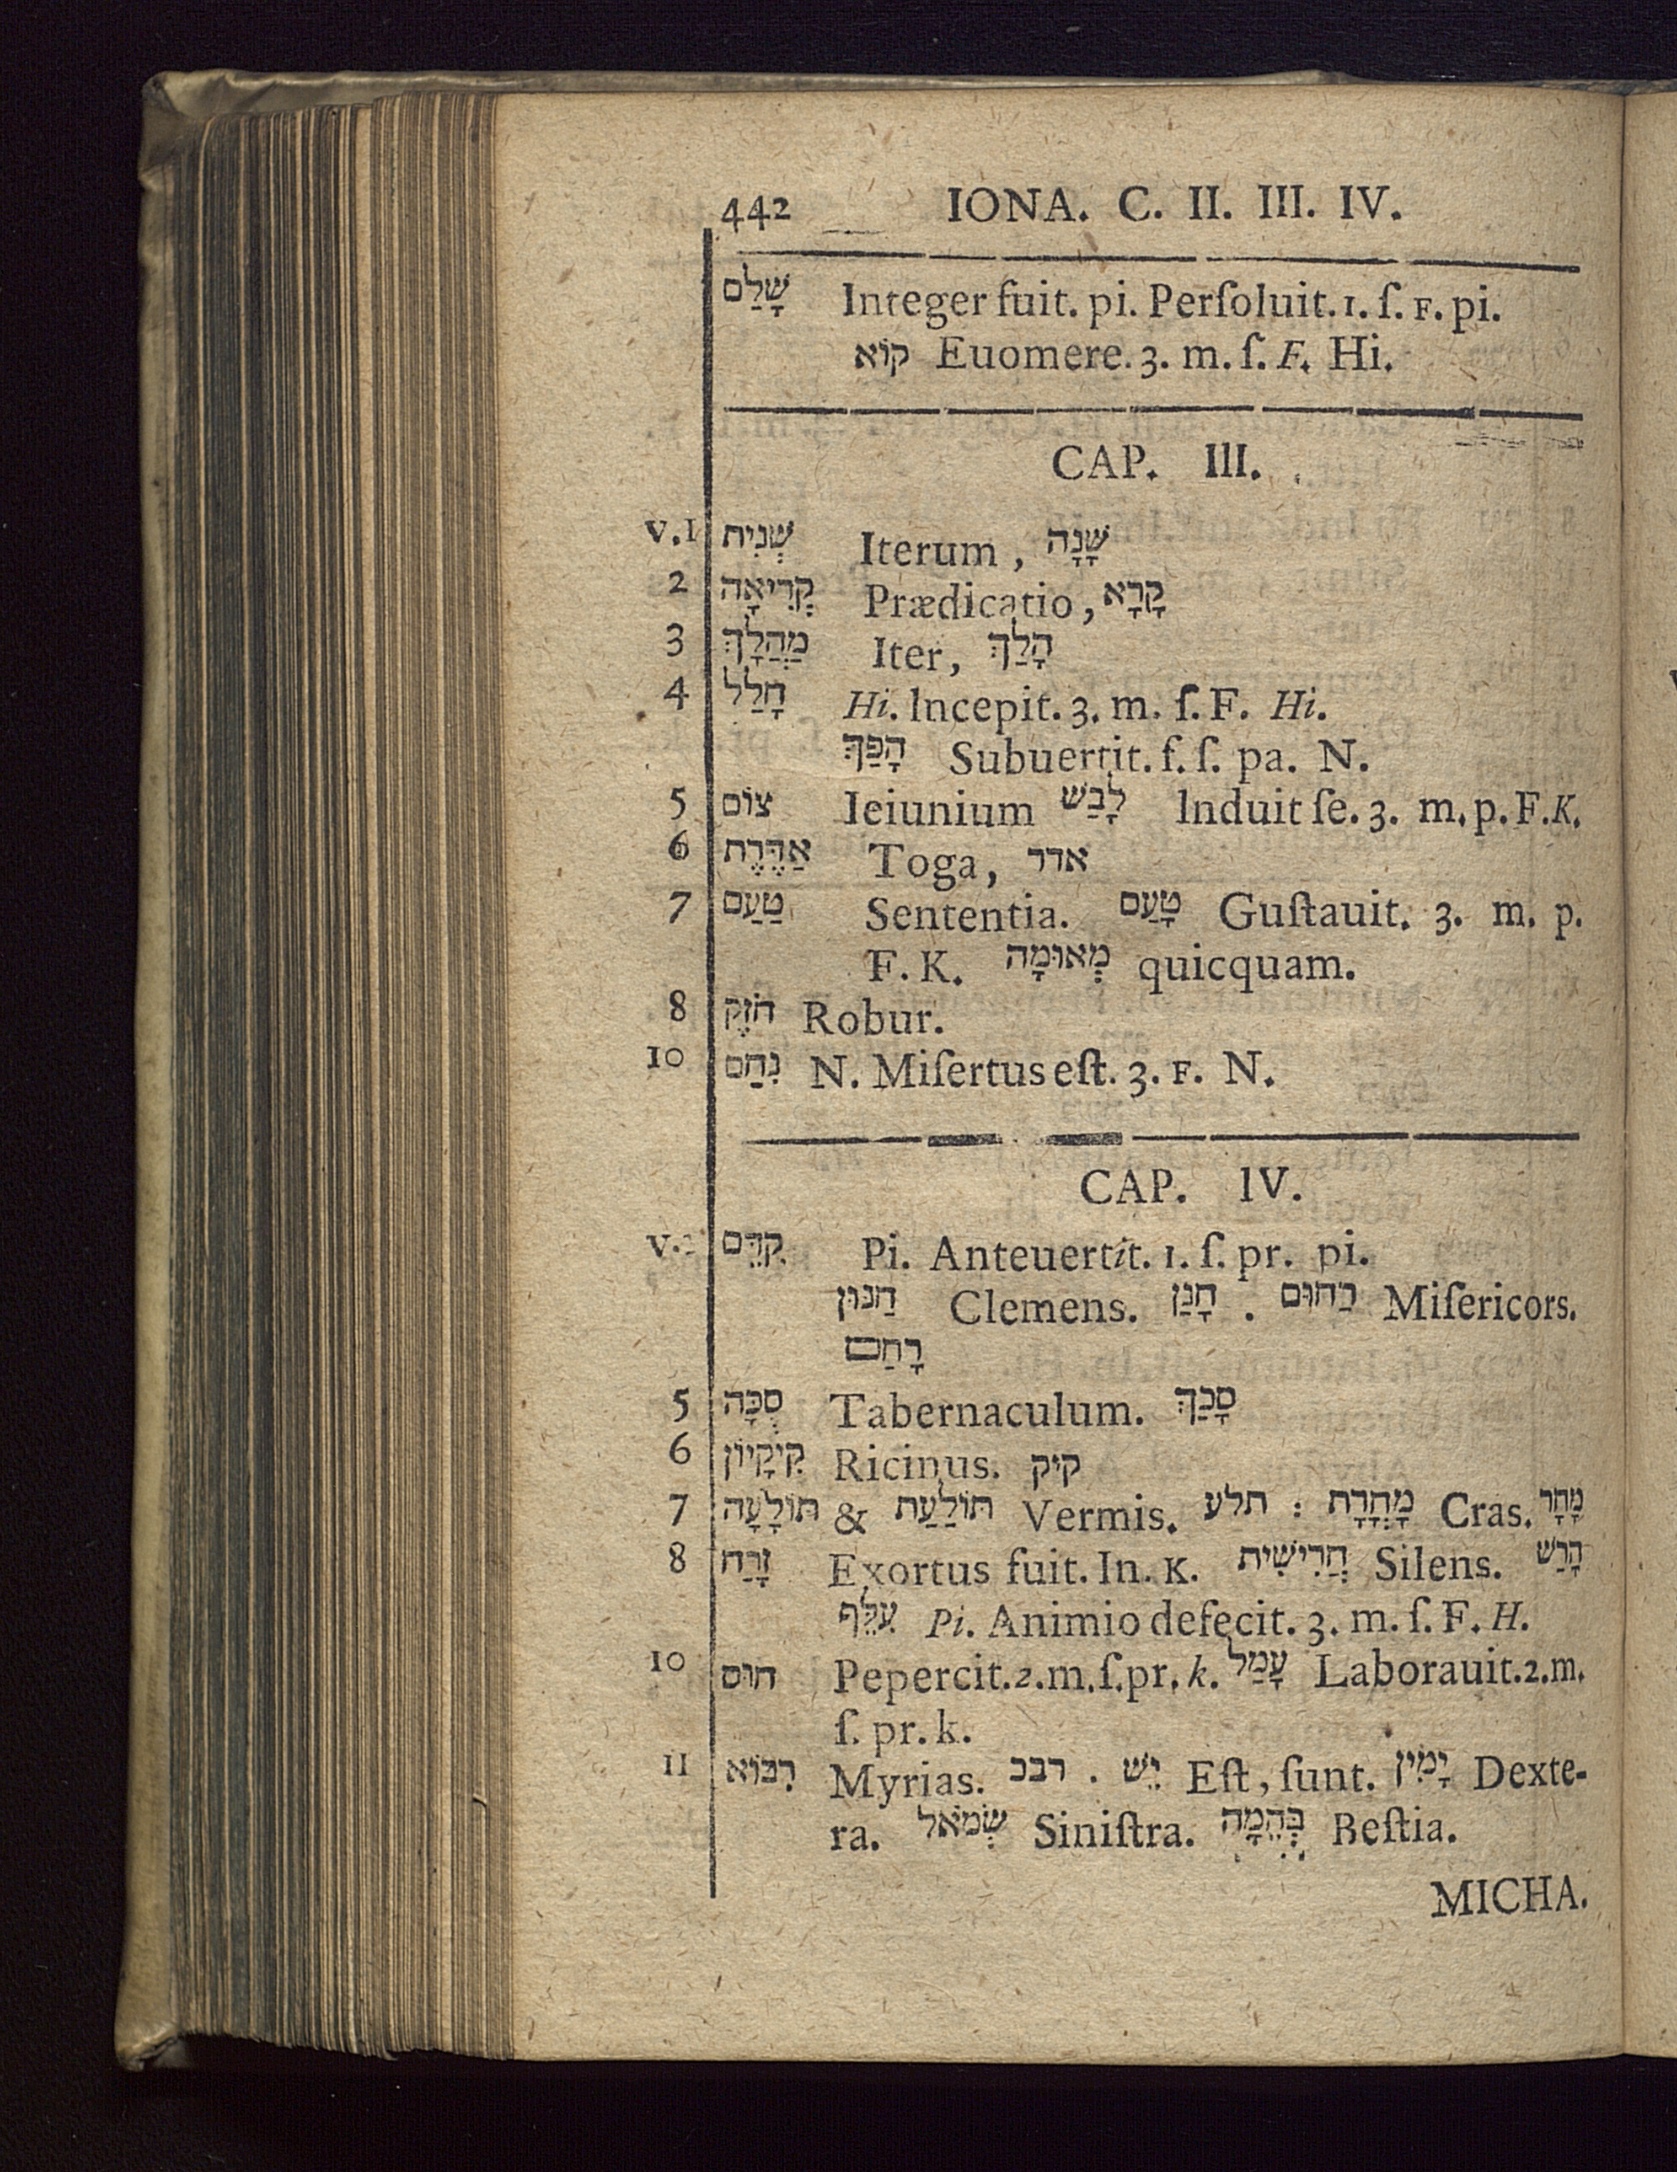 442 IONA. C. II. III. IV.
שָׁלַם Integer fuit. pi. Perſoluit. 1. ſ. F. pi.
קוֹא Euomere. 3. m. ſ. F. Hi.
CAP. III.
V. 1 שְׁנִית Iterum, שָׁנָה
2 קְרִיאָה Prædicatio, קָרָא
3 מַהֲלָךְ Iter, הָלַךְ
4 חָלַל Hi. Incepit. 3. m. ſ. F. Hi.
הָפַּךְ Subuertit. f. ſ. pa. N.
5 צוֹם Ieiunium לָבַשׁ Induit ſe. 3. m. p. F. K.
6 אַדֶּרֶת Toga, אדר
7 טַעַם Sententia. טָעַם Guſtauit. 3. m. p.
F. K. מְאוּמָה quicquam.
8 חֹזֶק Robur.
10 נִחַם N. Miſertus eſt. 3. F. N.
CAP. IV.
V. קִדֵּם Pi. Anteuertit. 1. ſ. pr. pi.
חַנּוּן Clemens. חָנַן . רַחוּם Miſericors.
רָחַם
5 סְכָּה Tabernaculum. סָכַךְ
6 קִיקָיוֹן Ricinus. קיק
7 תּוֹלָעָה & תּוֹלַעַת Vermis. תלע : מָחֳרָת Cras. מָחָר
8 זָרַח Exortus fuit. In. K. חֲרִישִׁית Silens. חָרַשׁ
עִלֵּף Pi. Animio defecit. 3. m. ſ. F. H.
10 חוּס Pepercit. 2. m. ſ. pr. k. עָמַל Laborauit. 2. m.
ſ. pr. k.
11 רִבּוֹא Myrias. רבב . יֵשׁ Eſt, ſunt. יָמִין Dexte-
ra. שְׂמֹאל Siniſtra. בְּהֵמָה Beſtia.
MICHA.